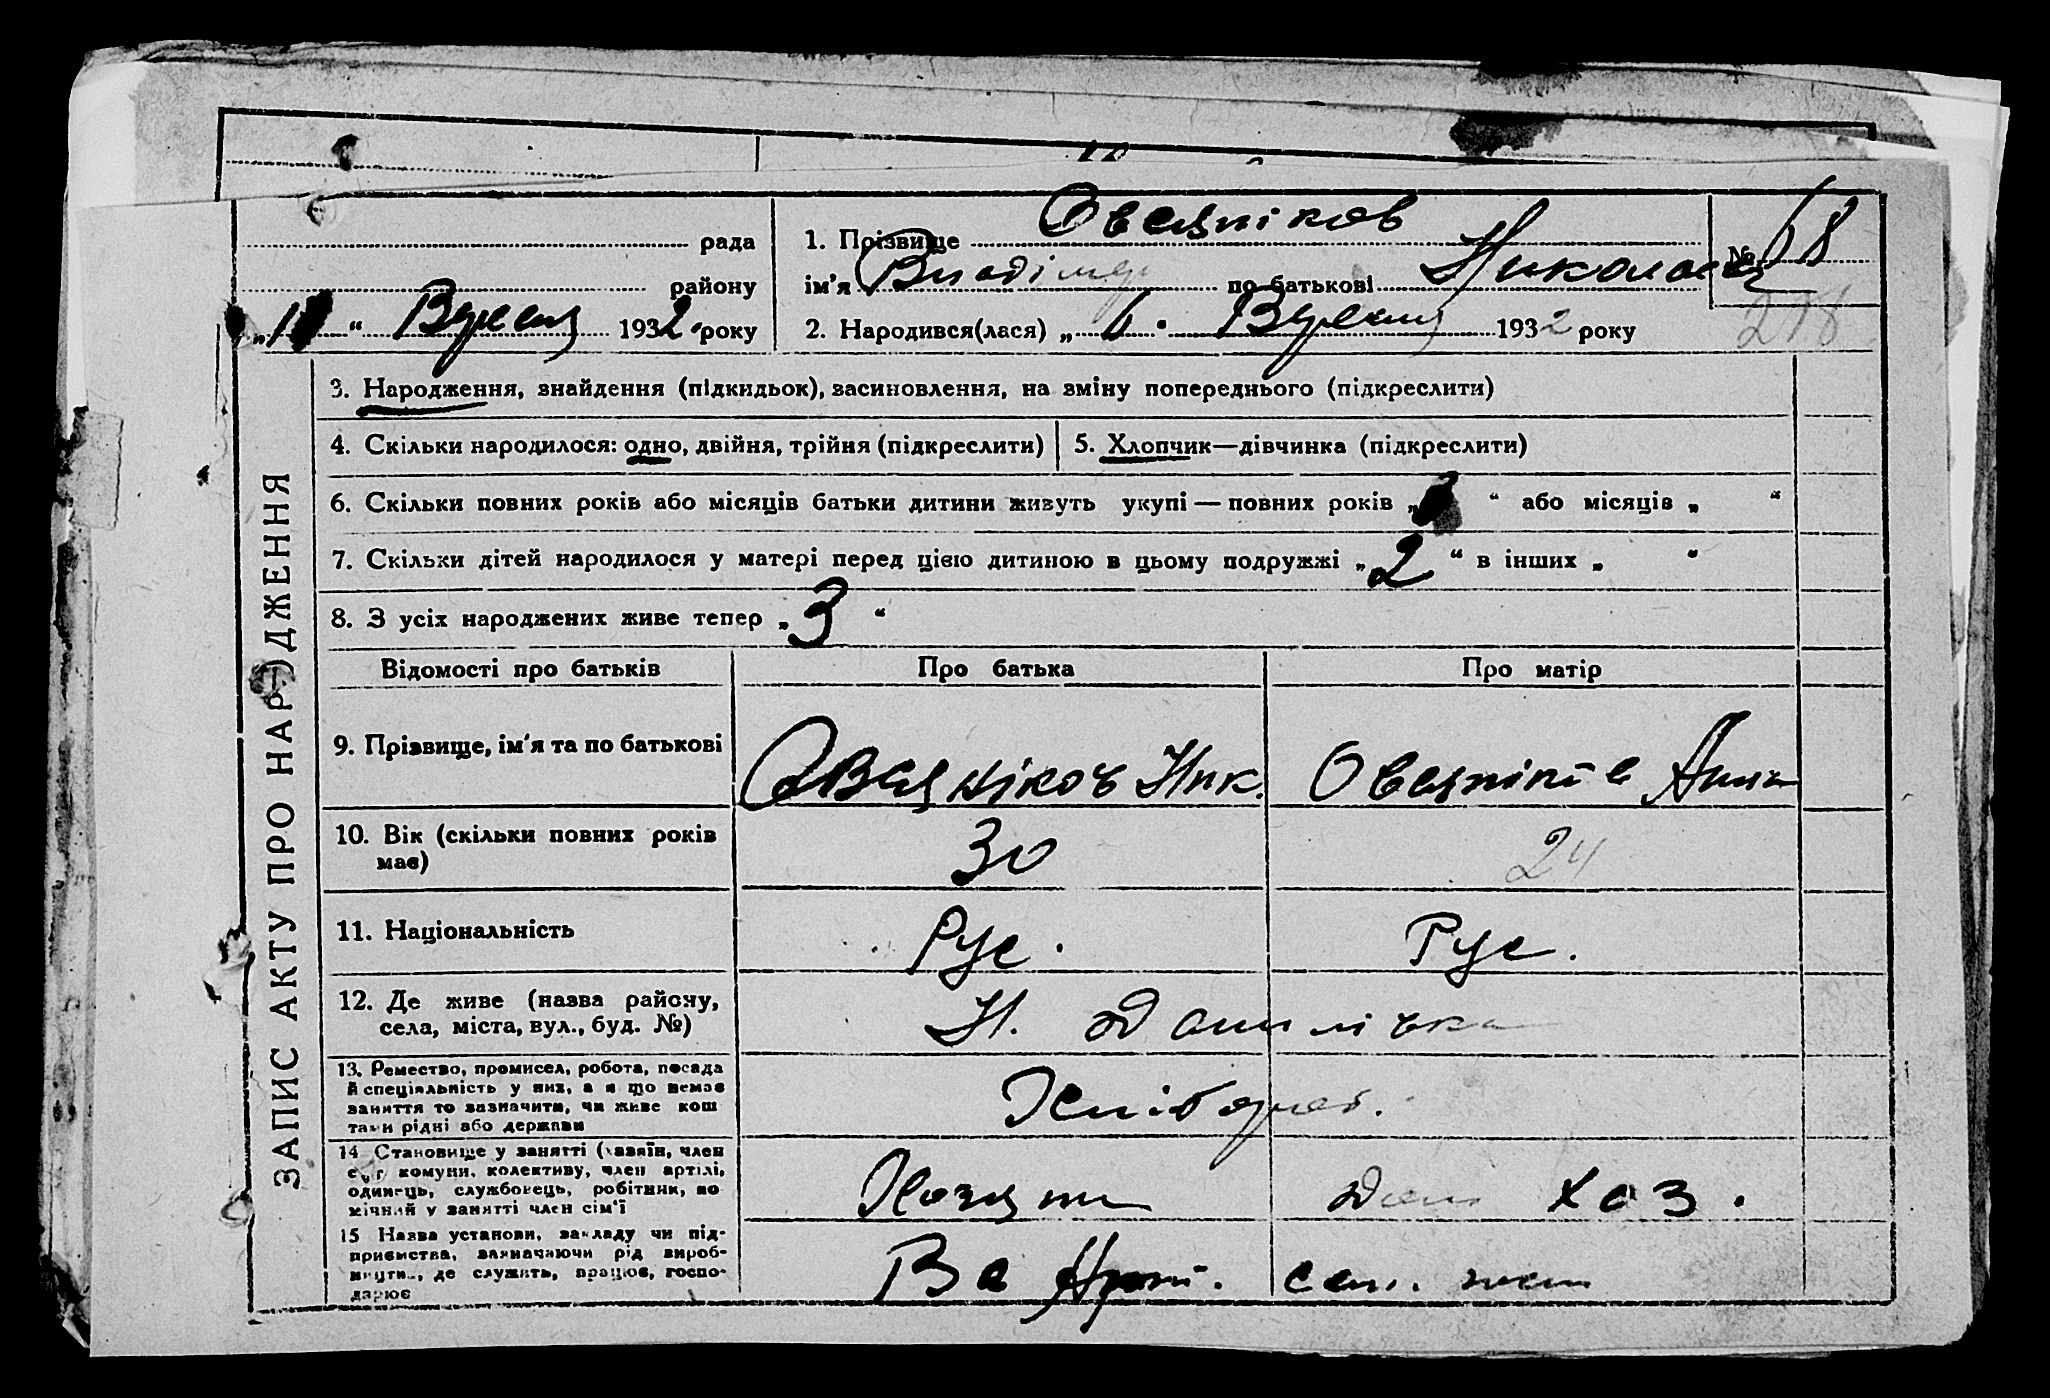 рада
1. Прізвище Овсянніков
№ 68
району
ім'я Владімир по батькові Николаев
278
" Вересня 1932 року
2. Народився(лася) „ 6 . Вересня 1932 року
ЗАПИС АКТУ ПРО НАРОДЖЕННЯ
3. Народження, знайдення (підкидьок), засиновлення, на зміну попереднього (підкреслити)
4. Скільки народилося: одно, двійня, трійня (підкреслити)
5. Хлопчик—дівчинка (підкреслити)
6. Скільки повних років або місяців батьки дитини живуть укупі — повних років „ “ або місяців „ “
7. Скільки дітей народилося у матері перед цією дитиною в цьому подружжі „ 2 “ в інших „ “
8. З усіх народжених живе тепер „ 3 “
Відомості про батьків
Про батька
Про матір
9. Прізвище, ім'я та по батькові
Ник.
Анна
10. Вік (скільки повних років
має)
30
24
11. Національність
Рус.
Рус.
12. Де живе (назва району,
села, міста, вул., буд. №)
Н.
13. Ремество, промисел, робота, посада
й спеціяльність у них, а я що немає
заняття то зазначити, чи живе кош
тами рідні або держави
14 Становище у занятті (хазяїн, член
комуни, колективу, член артілі,
одинець, службовець, робітник, по
мічний у занятті член сім'ї
хоз.
15 Назва установи, закладу чи під-
приємства, зазначаючи рід вироб-
ництва, де служить, працює, госпо-
дарює